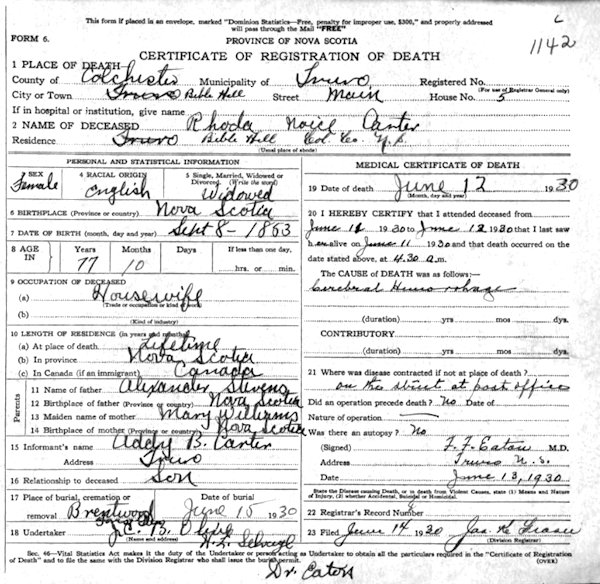 This form if placed in an envelope, marked "Dominion Statistics—Free, penalty for improper use, $300," and properly addressed
will pass through the Mail "FREE"
FORM 6.
PROVINCE OF NOVA SCOTIA
1142
CERTIFICATE OF REGISTRATION OF DEATH
1 PLACE OF DEATH
County of Colchester Municipality of Truro Registered No.
(For use of Registrar General only)
City or Town Truro Bible Hill Street Main House No. 5
If in hospital or institution, give name
2 NAME OF DECEASED Rhoda Carter
Residence Truro Bible Hill Col. Co. N.S.
(Usual place of abode)
PERSONAL AND STATISTICAL INFORMATION
3 SEX Female
4 RACIAL ORIGIN English
5 Single, Married, Widowed or Divorced. (Write the word) Widowed
6 BIRTHPLACE (Province or country) Nova Scotia
7 DATE OF BIRTH (month, day and year) Sept 8 - 1853
8 AGE IN Years Months Days If less than one day,
77 10 hrs. or min.
9 OCCUPATION OF DECEASED
(a) Housewife
(Trade or occupation or kind of work)
(b)
(Kind of industry)
10 LENGTH OF RESIDENCE (in years and months)
(a) At place of death Lifetime
(b) In province Nova Scotia
(c) In Canada (if an immigrant) Canada
Parents
11 Name of father Alexander Stevens
12 Birthplace of father (Province or country) Nova Scotia
13 Maiden name of mother Mary Williams
14 Birthplace of mother (Province or country) Nova Scotia
15 Informant's name Addy B. Carter
Address Truro
16 Relationship to deceased Son
17 Place of burial, cremation or removal Brentwood
Date of burial June 15 1930
18 Undertaker
(Name and address)
MEDICAL CERTIFICATE OF DEATH
19 Date of death June 12 1930
(Month, day and year)
20 I HEREBY CERTIFY that I attended deceased from
June 11 1930 to June 12 1930 that I last saw
her alive on June 11 1930 and that death occurred on
date stated above, at 4.30 a.m.
The CAUSE OF DEATH was as follows:
Cerebral
(duration) yrs mos dys.
CONTRIBUTORY
(duration) yrs. mos. dys.
21 Where was disease contracted if not at place of death?
on the street at post office
Did an operation precede death? No Date of
Nature of operation
Was there an autopsy? No
(Signed) F. F. Eaton M.D.
Address Truro N.S.
Date June 13, 1930
State the Disease causing Death, or in death from Violent Causes, state (1) Means and Nature
of Injury, (2) whether Accidental, Suicidal or Homicidal.
22 Registrar's Record Number
23 Filed June 14 1930 Jas. K. Fraser
(Division Registrar)
Sec. 46—Vital Statistics Act makes it the duty of the Undertaker or person acting as Undertaker to obtain all the particulars required in the "Certificate of Registration
of Death" and to file the same with the Division Registrar who shall issue the burial permit.
(OVER)
Dr. Eaton